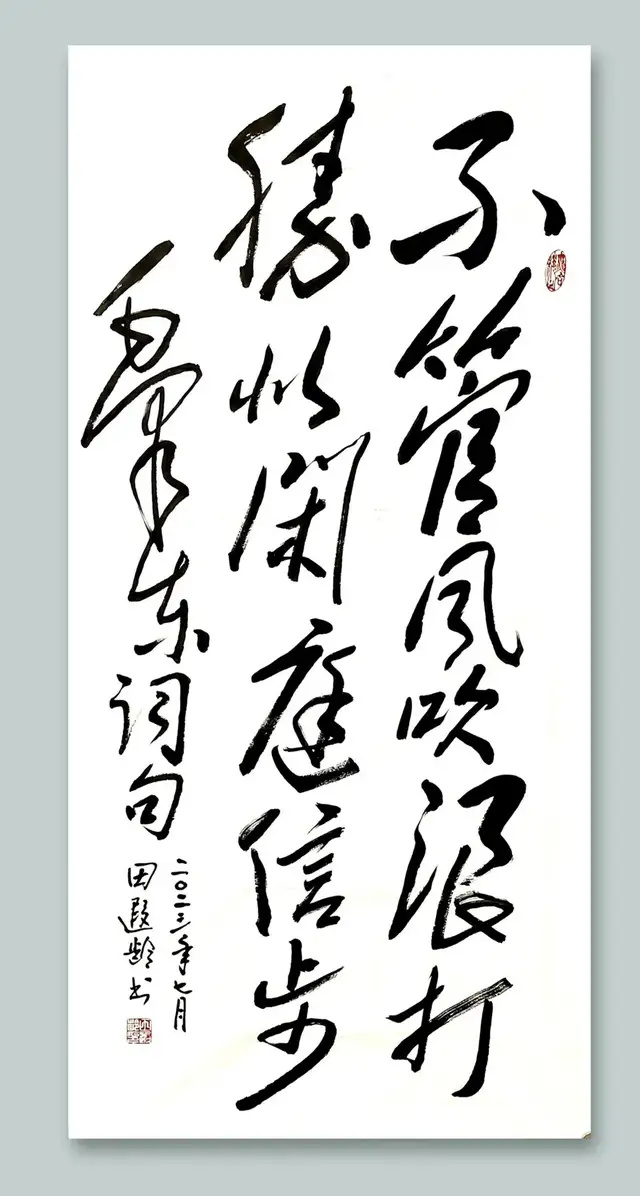 不管风吹浪打
胜似闲庭信步
毛泽东词句
二〇二三年七月
田遐龄书